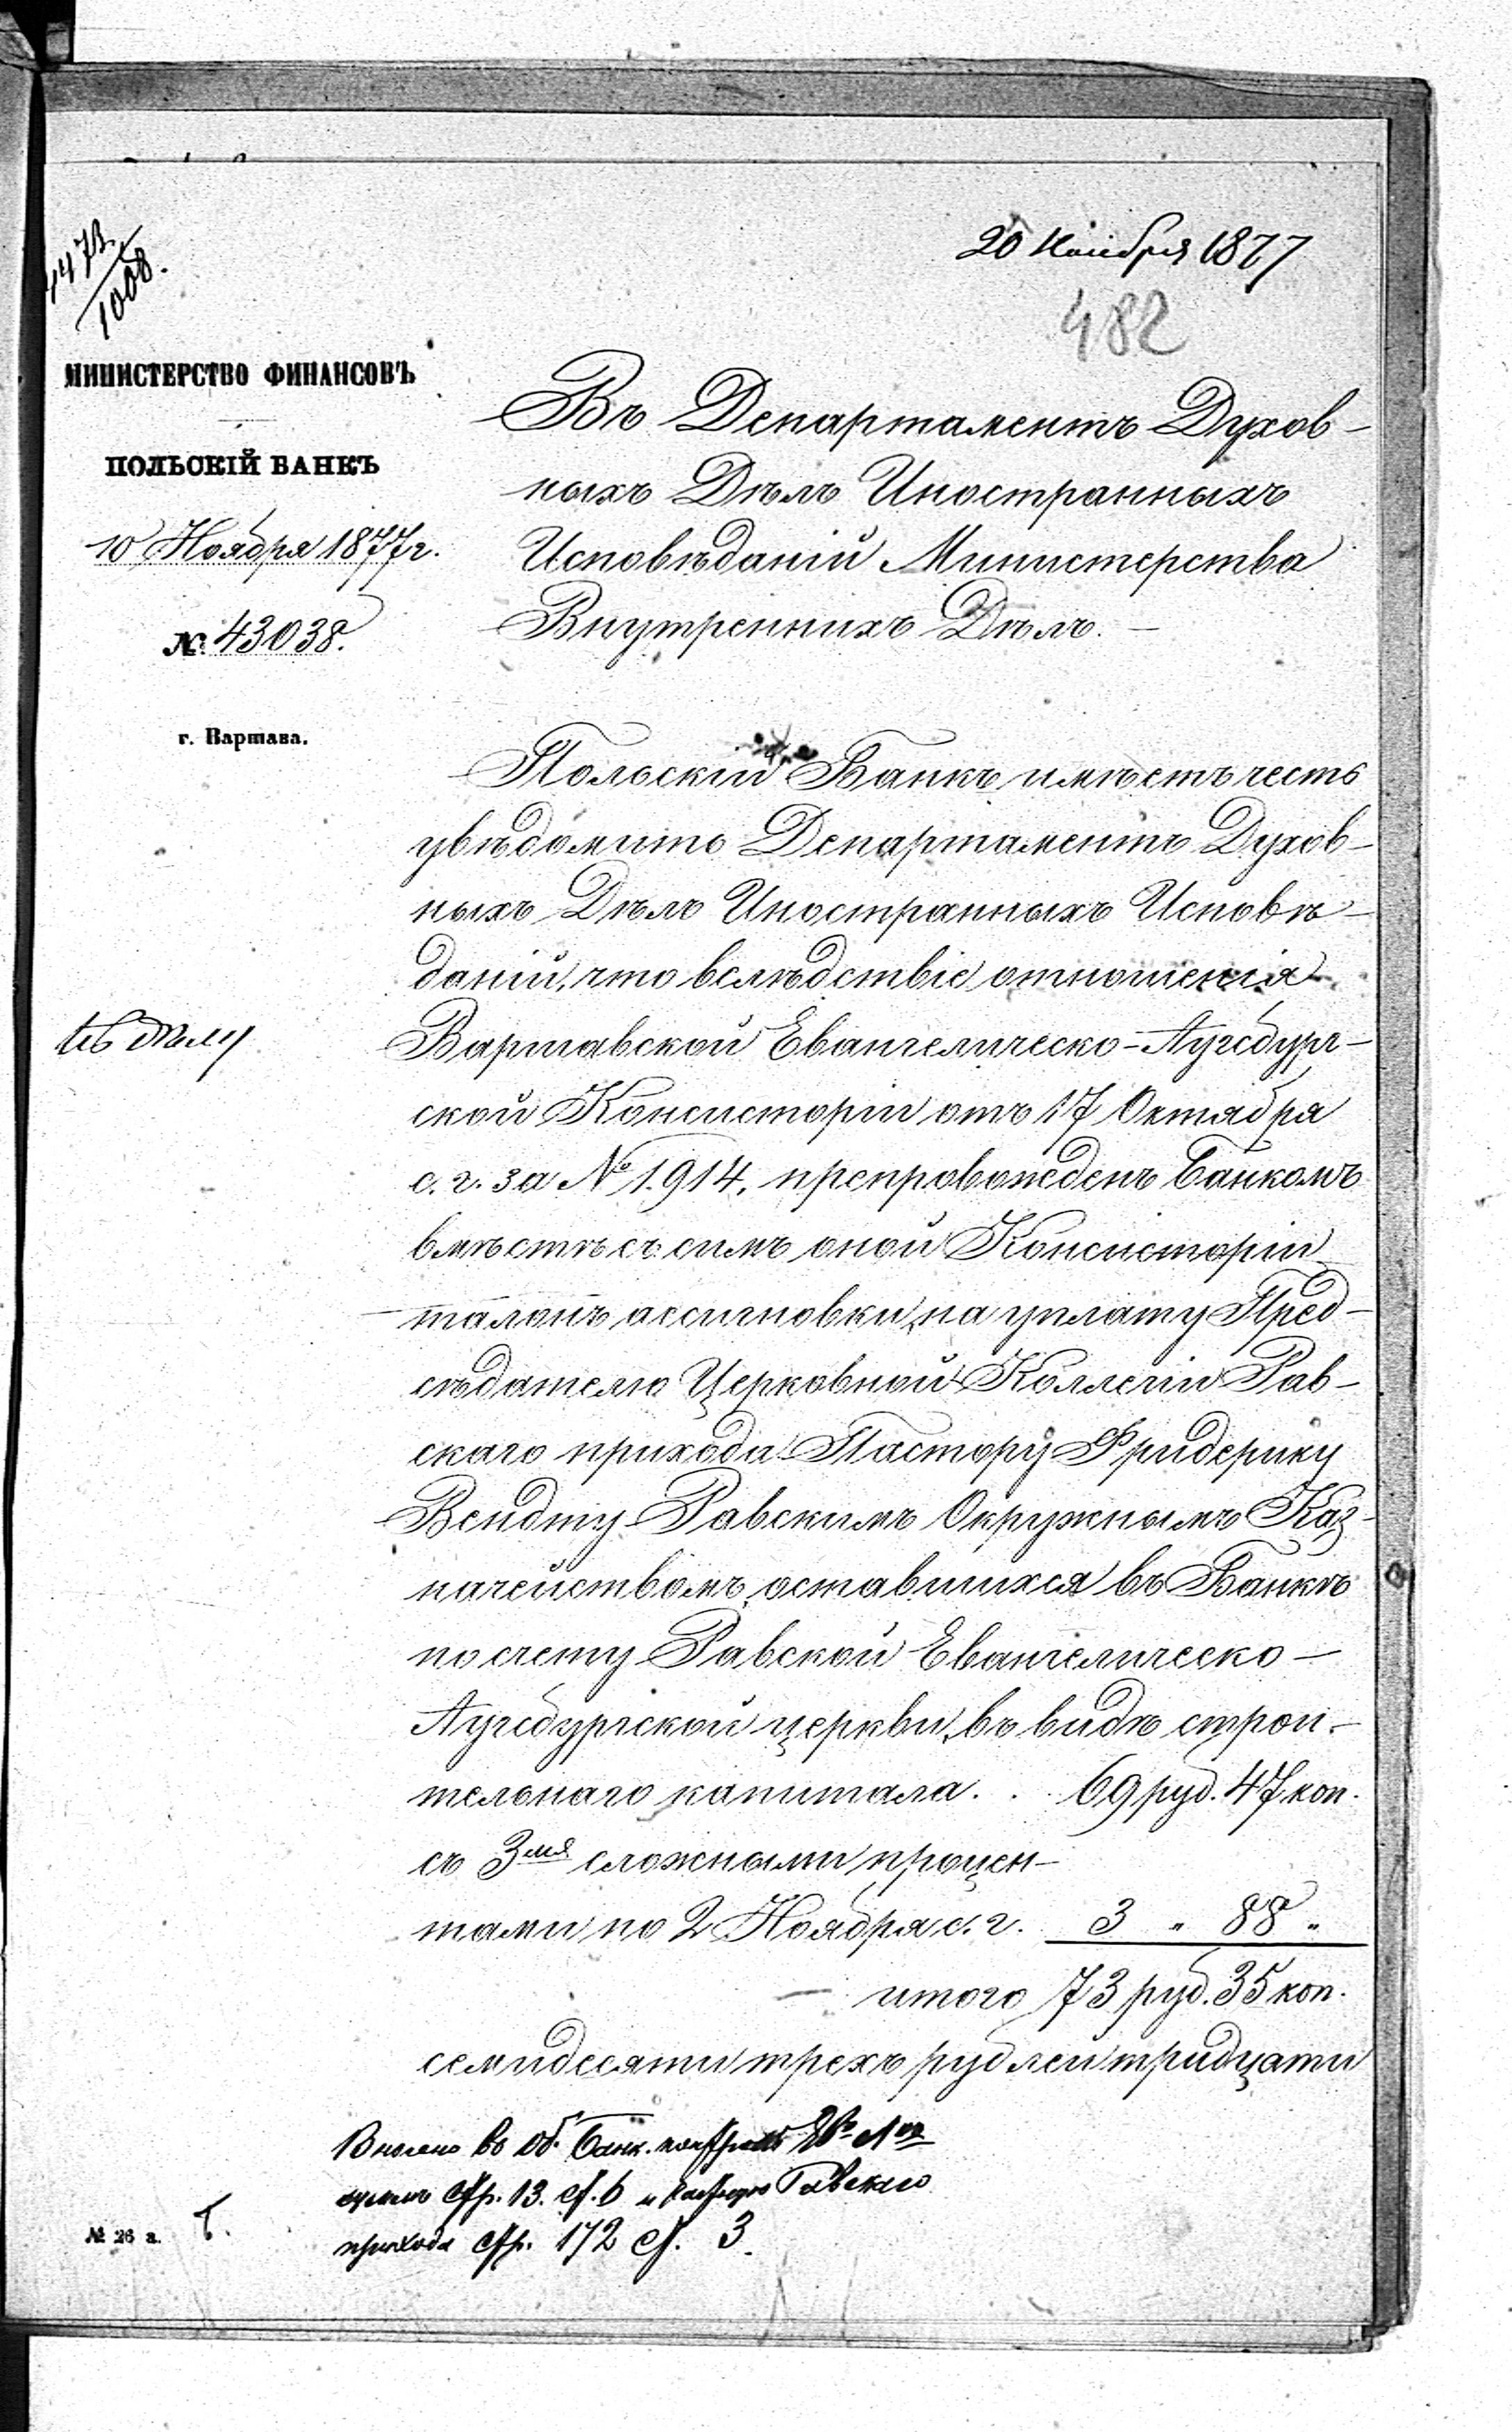 20 Ноября 1877
482
1008.
МИНИСТЕРСТВО ФИНАНСОВЪ
ПОЛЬСКІЙ БАНКЪ
10 Ноября 1877 г.
№ 43038.
г. Варшава.
Въ Департаментъ Духов-
ныхъ Дѣлъ Иностранныхъ
Исповѣданій Министерства
Внутреннихъ Дѣлъ. —
Польскій Банкъ имѣетъ честь
увѣдомить Департаментъ Духов-
ныхъ Дѣлъ Иностранныхъ Исповѣ-
даній, что вслѣдствіе отношенія
Къ дѣлу
Варшавской Евангелическо-Аугсбург-
ской Консисторіи отъ 17 Октября
с. г. за № 1914, препровожденъ Банкомъ
вмѣстѣ съ симъ оной Консисторіи
талонъ ассигновки, на уплату Пред-
сѣдателю Церковной Коллегіи Рав-
скаго прихода Пастору Фридерику
Вендту Равскимъ Окружнымъ Каз-
начействомъ, оставшихся въ Банкѣ
по счету Равской Евангелическо-
Аугсбургской церкви, въ видѣ строи-
тельнаго капитала. . 69 руб. 47 коп.
съ 3мя сложными процен-
тами по 2 Ноября с. г. 3 " 88 "
итого 73 руб. 35 коп.
семидесяти трехъ рублей тридцати
Внесено во об. Банк.
стр. 13. ст. 6 и Равскаго
прихода стр. 172 ст. 3.
№ 26 а.